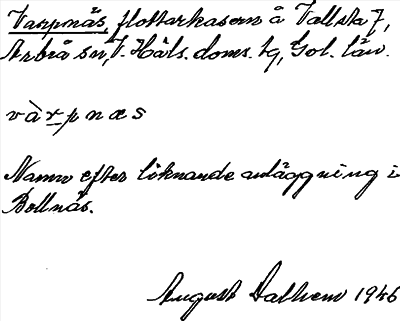 Varpnäs, flottarkasern å Vallsta 7,
Arbrå sn, V. Häls. doms. tg, Gol. län.
vàrpnæs
Namn efter liknande anläggning i
Bollnäs.
August Dalhem 1946